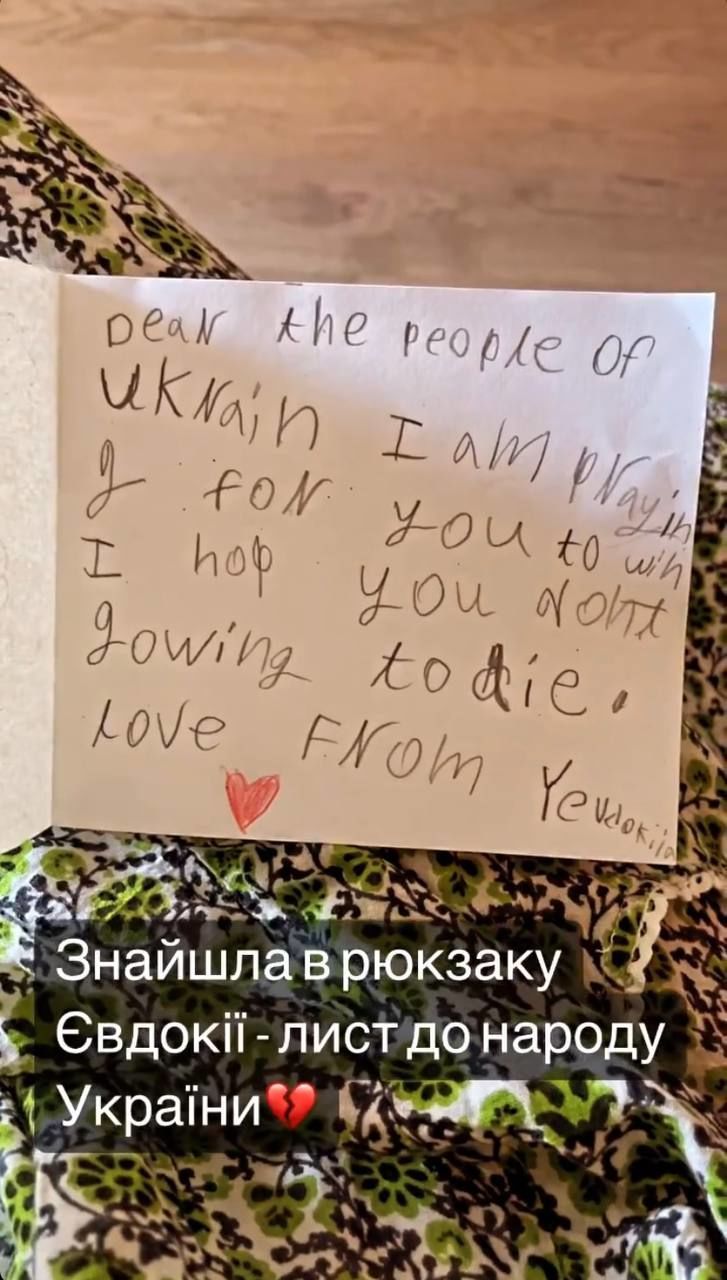 Dear the people of
UKRain I am prayin
g for you to win
I hop you dont
gowing to die.
Love From Yevdokiia
Знайшла в рюкзаку
Євдокії - лист до народу
України💔